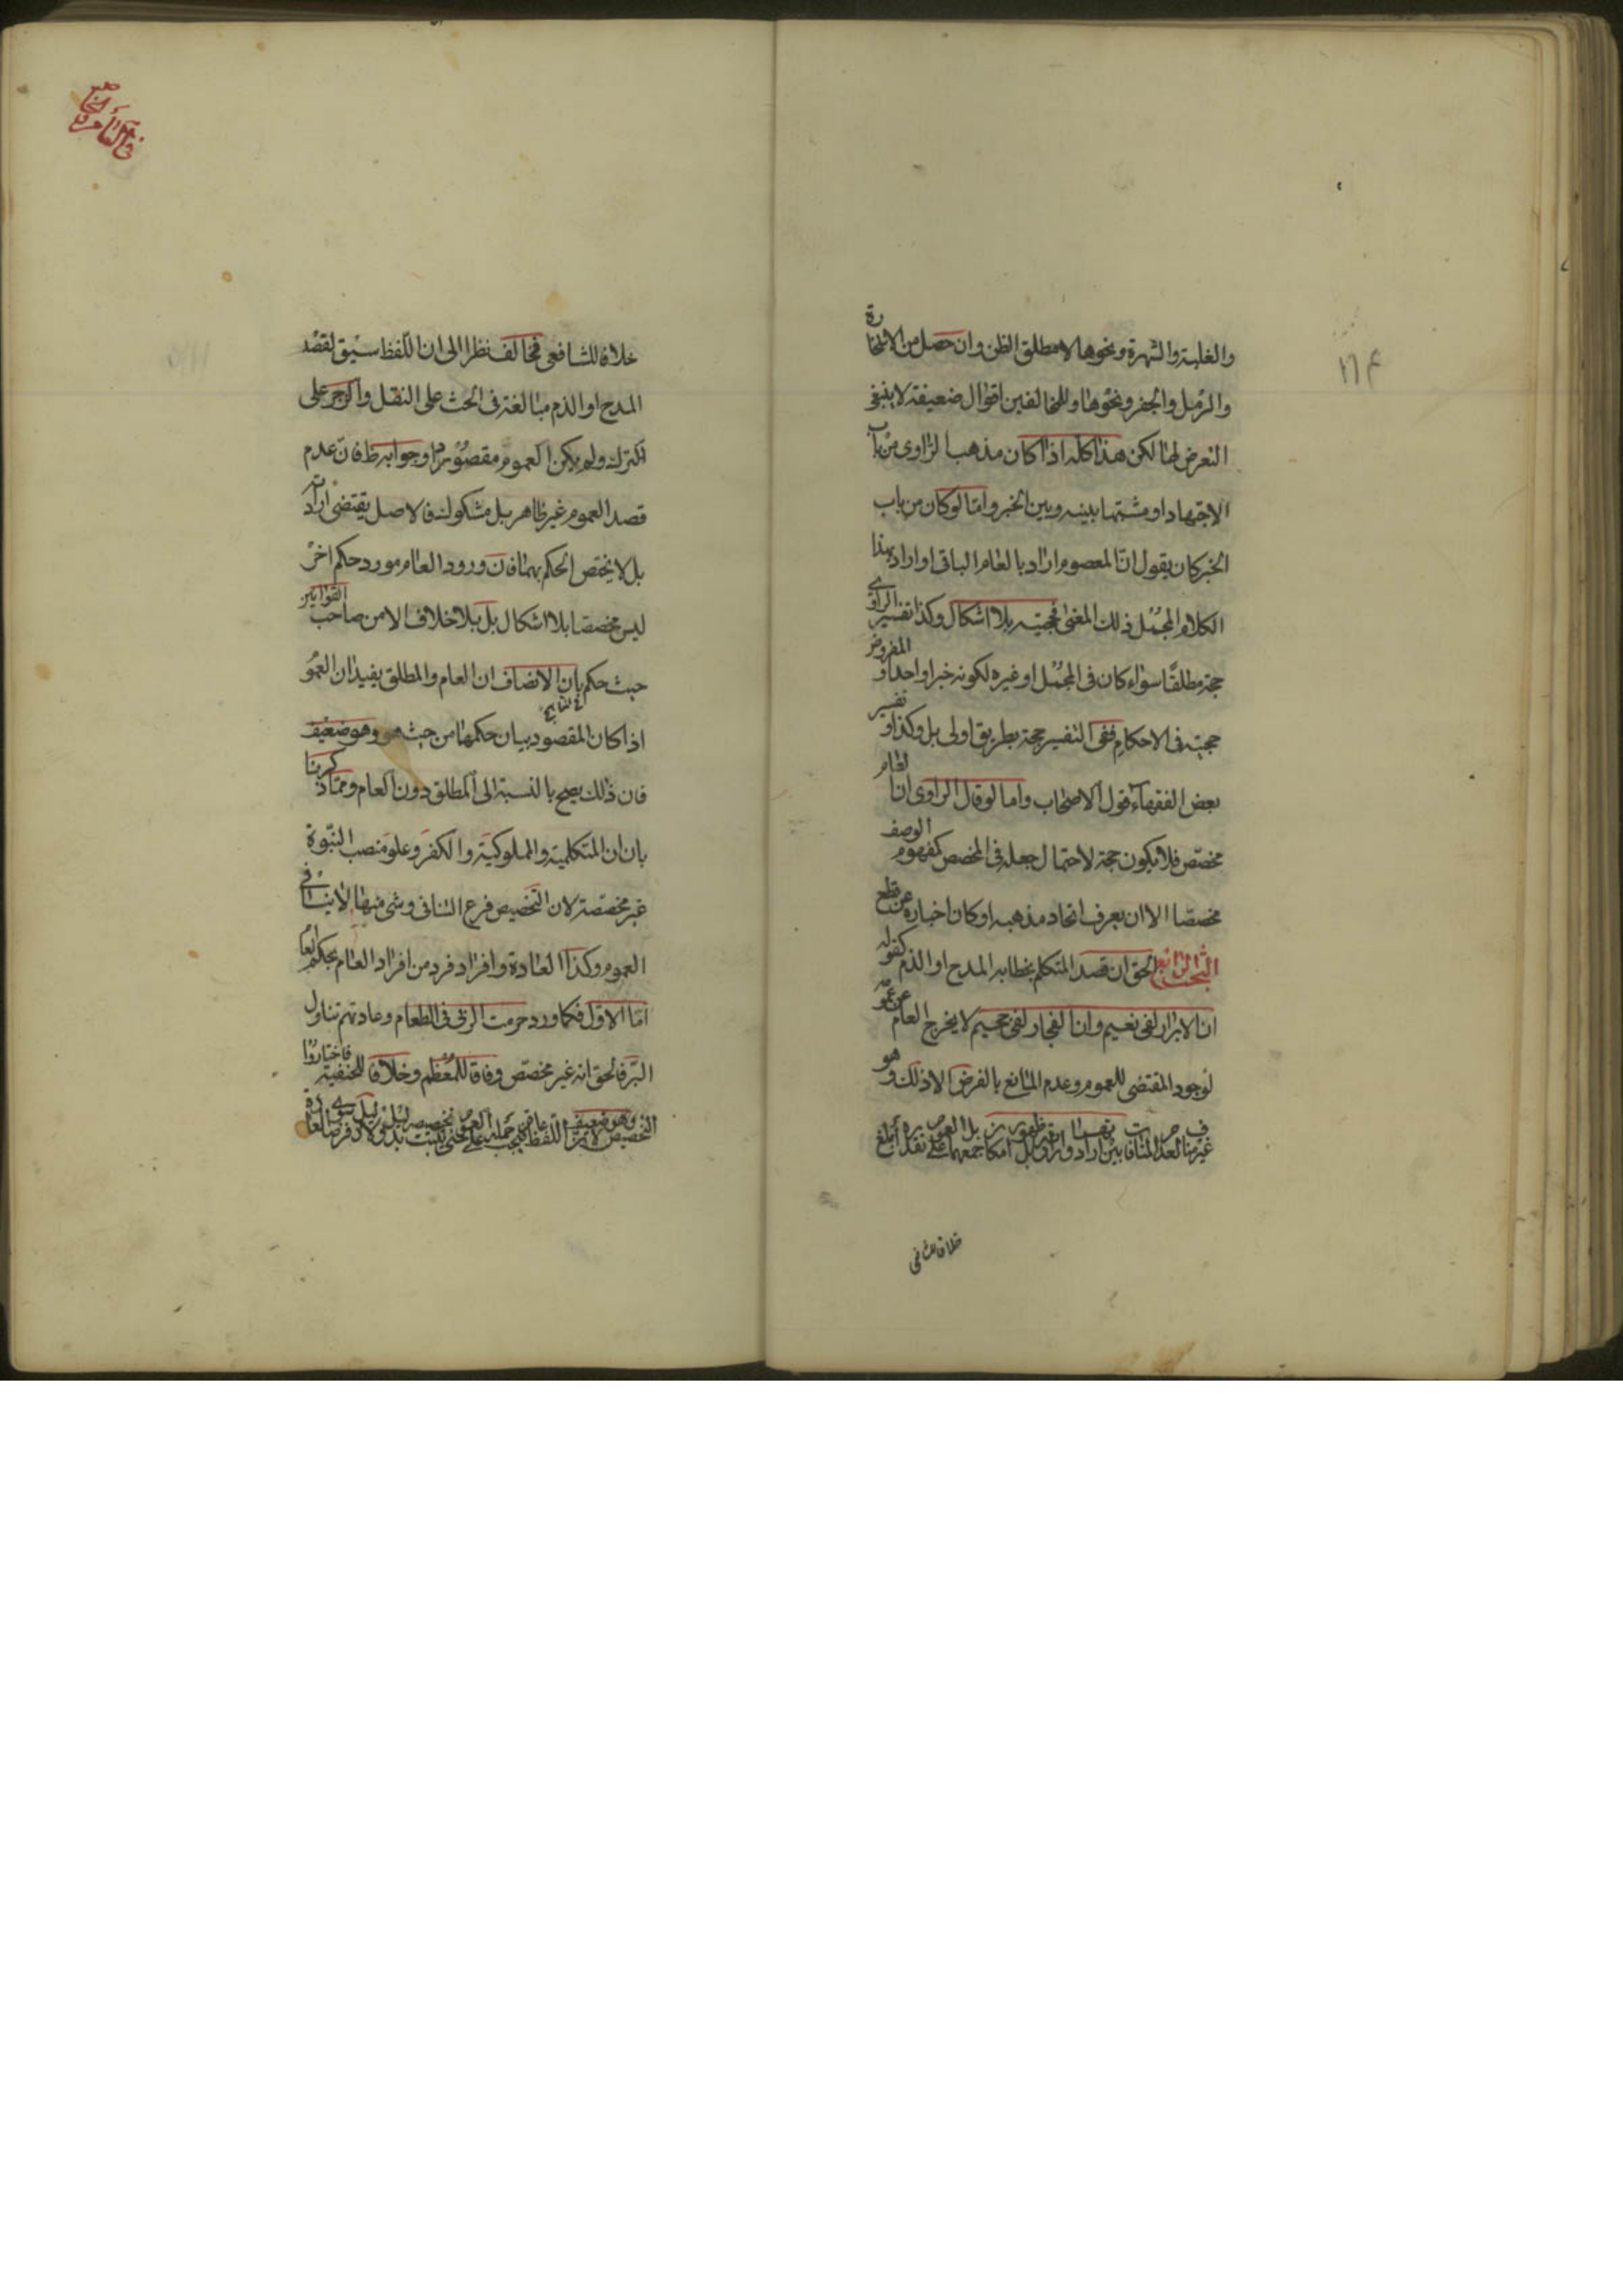 والغلبة والشهرة ونحوها لا مطلق الظن وان حصل من الاستخارة
والرمل والجفر ونحوها وللمخالفين اقوال ضعيفة لا ينبغى
التعرض لها لكن هذا كله اذا كان مذهب الراوى من باب
الاجتهاد او مشتبها بينه وبين الخبر واما لو كان من باب
الخبر كان يقول ان المعصوم اراد بالعام الباقى او اراد بهذا
الكلام المجمل ذلك المعنى فحجيته بلا اشكال وكذا تفسير الراوى
حجة مطلقا سواء كان فى المجمل او غيره لكونه خبرا واحدا والمفروض
حجيته فى الاحكام ففى التفسير حجة بطريق اولى بل وكذا وتفسير
بعض الفقهاء قول الاصحاب واما لو قال الراوى ان العام
مخصص فلا يكون حجة لاحتمال جعله فى المخصص كمفهوم الوصف
مخصصا الا ان يعرف اتحاد مذهبه او كان اخباره عن قطع
البحث الرابع الحق ان قصد المتكلم بخطابه المدح او الذم كقوله
ان الابرار لفى نعيم وان الفجار لفى جحيم لا يخرج العام عن عمومه
لوجود المقتضى للعموم وعدم المانع بالفرض الا ذلك وهو
خلافا للشافعى
فى العام والخاص
خلافا للشافعى فخالف نظرا الى ان اللفظ سيق لقصد
المدح او الذم مبالغة فى الحث على النقل والزجر على
الترك ولم يكن العموم مقصودا وجوابه ظ فان عدم
قصد العموم غير ظاهر بل مشكوك فالاصل يقتضى ارادته
بل لا يختص الحكم بهما فان ورود العام مورد حكم اخر
ليس مخصصا بلا اشكال بل بلا خلاف الا من صاحب القوانين
حيث حكم بان الانصاف ان العام والمطلق يفيدان العمو
اذا كان المقصود بيان حكمهما من حيث هو وهو ضعيف
فان ذلك يصح بالنسبة الى المطلق دون العام ومما ذكرنا
بان ان المتكلمية والمملوكية والكفر وعلو منصب النبوة
غير مخصصة لان التخصيص فرع التنافى وشئ منها لا ينافى
العموم وكذا العادة وافراد فرد من افراد العام بحكم العام
اما الاول فكما ورد حرمت الربى فى الطعام وعادتهم تناول
البر فالحق انه غير مخصص وفاقا للمعظم وخلافا للحنفية فاختاروا